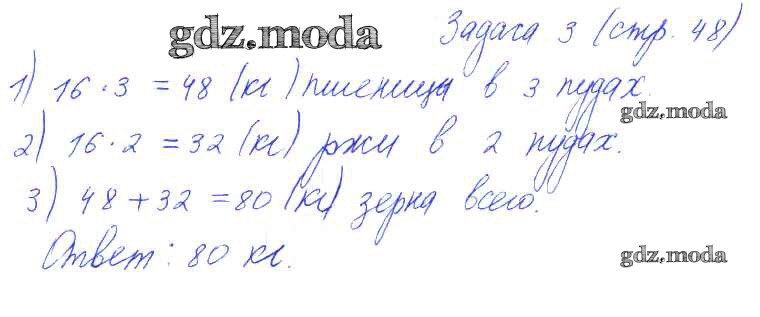 gdz.moda
Задача 3 (стр. 48)
1) 16 · 3 = 48 (кг) пшеницы в 3 пудах.
gdz.moda
2) 16 · 2 = 32 (кг) ржи в 2 пудах.
3) 48 + 32 = 80 (кг) зерна всего.
Ответ: 80 кг.
gdz.moda